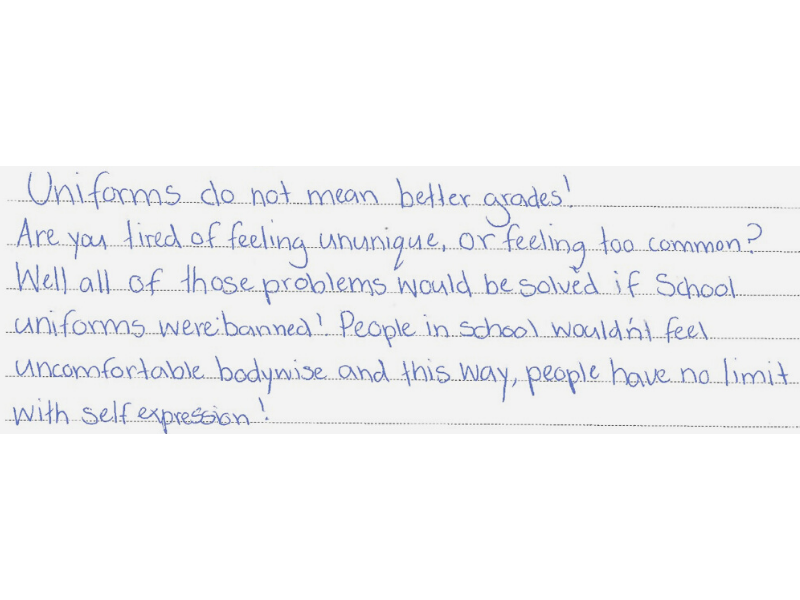 Uniforms do not mean better grades!
Are you tired of feeling ununique, or feeling too common?
Well all of those problems would be solved if School
uniforms were banned! People in school wouldn't feel
uncomfortable bodywise and this way, people have no limit
with self expression!